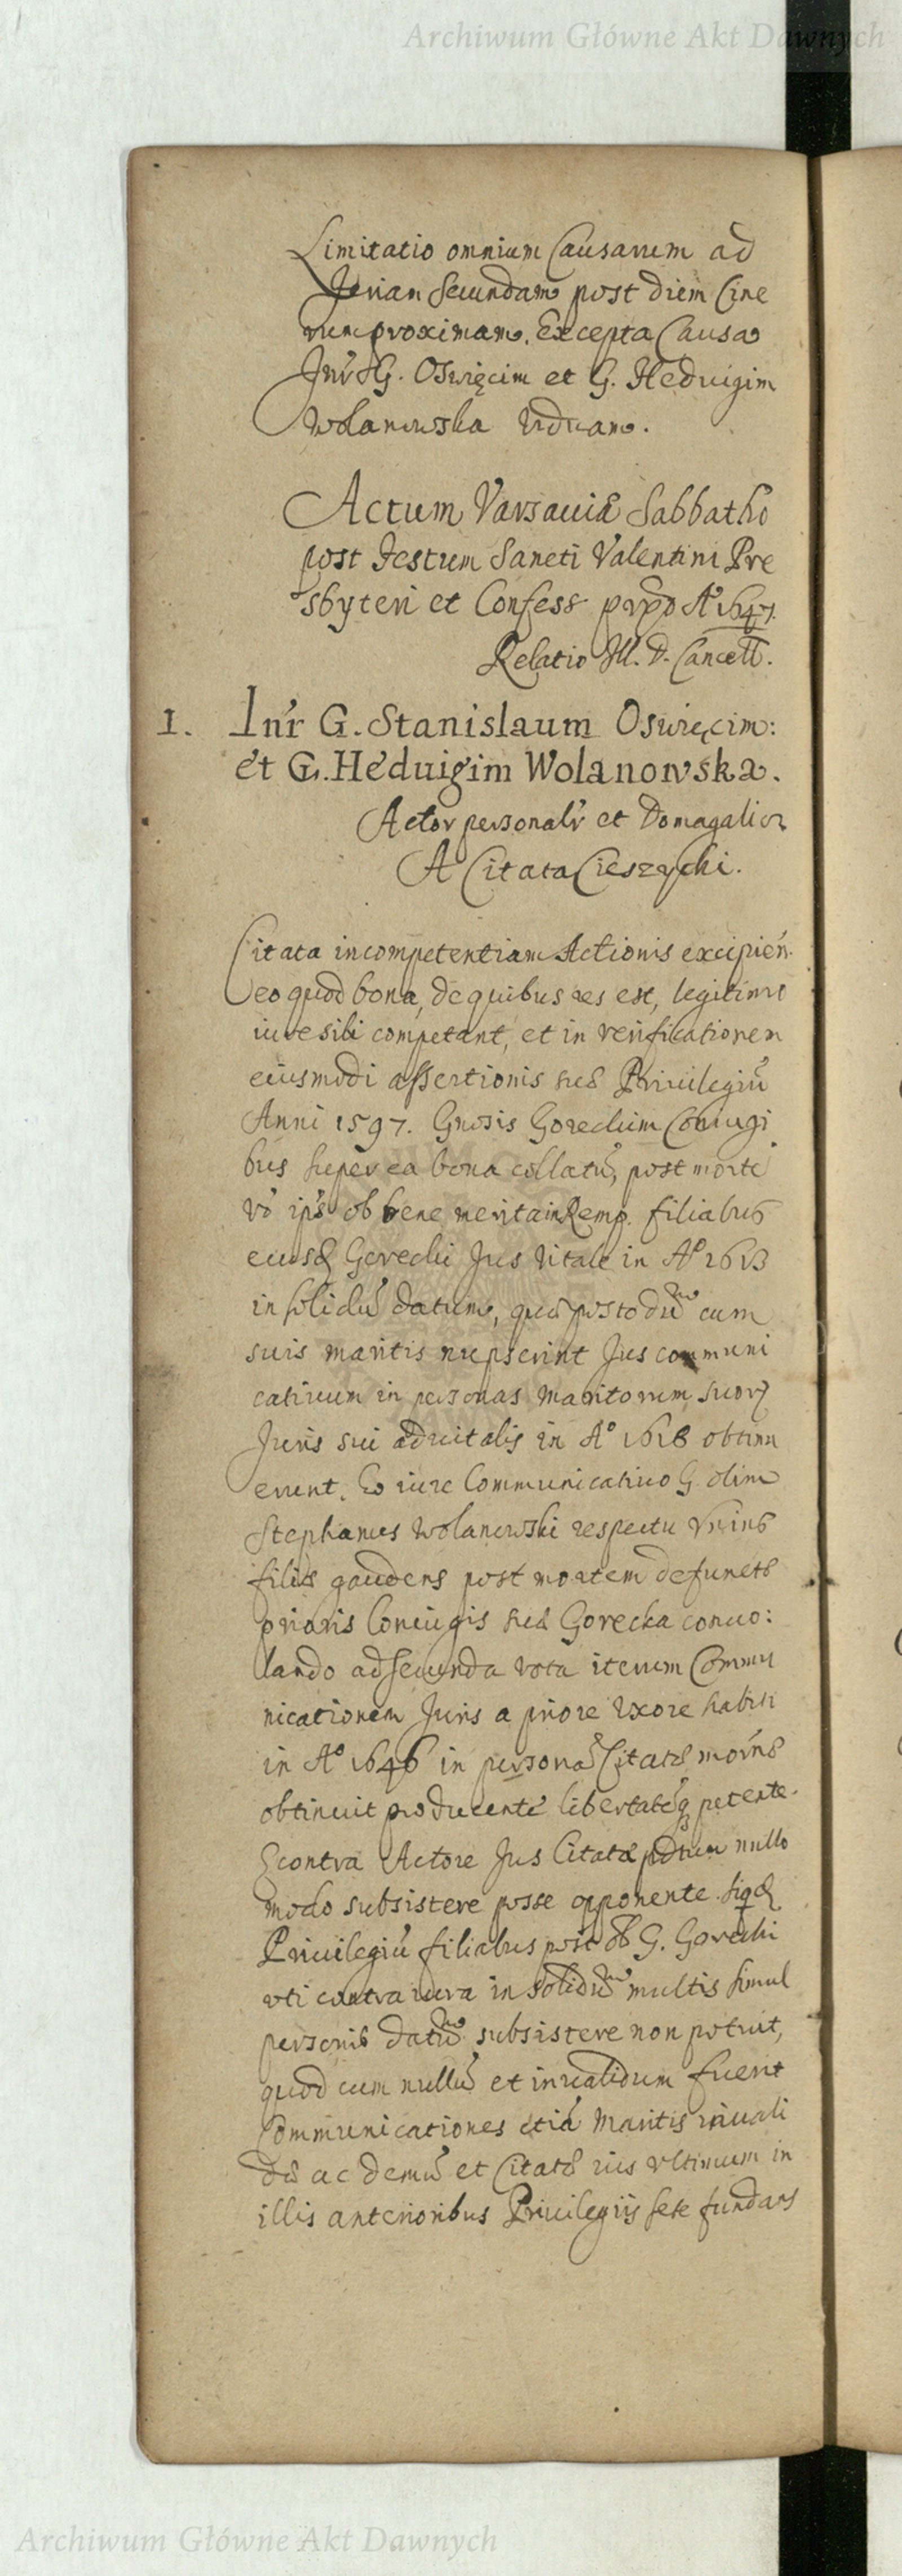 Archiwum Główne Akt Dawnych
Limitatio omnium Causarum ad
Feriam Secundam post diem Cine
rum proximam. Excepta Causa
Inr̃ G. Oswięcim et G. Heduigim
Wolanowska Viduam.
Actum Varsauiæ Sabbatho
post Festum Sancti Valentini Pre
sbyteri et Confess prox̃ Aº 1647.
Relatio Ill. D. Cancell.
1. Inr̃ G. Stanislaum Oswięcim:
et G. Heduigim Wolanowska.
Actor personalr̃ et Domagalicz
A Citata Cieszycki.
Citata incompetentiam Actionis excipien̄.
eo quod bona, de quibus res est, legitimo
iure sibi competant, et in verificationem
eiusmodi assertionis suæ Priuilegiū
Anni 1597. Gnosis Goreckim Coniugi
bus super ea bona collatū, post mortē
vō ip̄s ob bene merita in Remp. filiabus
eiusd Gorecki Jus Vitale in Aº 1613
in solidū datum, quæ postq̄ dū cum
suis maritis nupserint Jus communi
catiuum in personas Maritorum suorꝝ
Juris sui aduitalis in Aº 1618 obtinu
erunt. Eo iure Communicatiuo G. olim
Stephanus Wolanowski respectu Vnius
filiæ gaudens post mortem defunctæ
prioris Coniugis suæ Gorecka conuo:
lando ad secunda vota iterum Commu
nicationem Juris a priore Vxore habiti
in Aº 1646 in personā Citatæ
obtinuit producente libertatēq petente.
Econtra Actore Jus Citatæ pdtum nullo
modo subsistere posse opponente. siqd
Priuilegiū filiabus post G. Gorecki
vti contra iura in solidū multis simul
personis datū subsistere non potuit,
quod cum nullū et inualidum fuerit
Communicationes etiā Maritis inuali
dæ ac demū et Citatæ ius vltimum in
illis anterioribus Priuilegiis sese fundans
Archiwum Główne Akt Dawnych